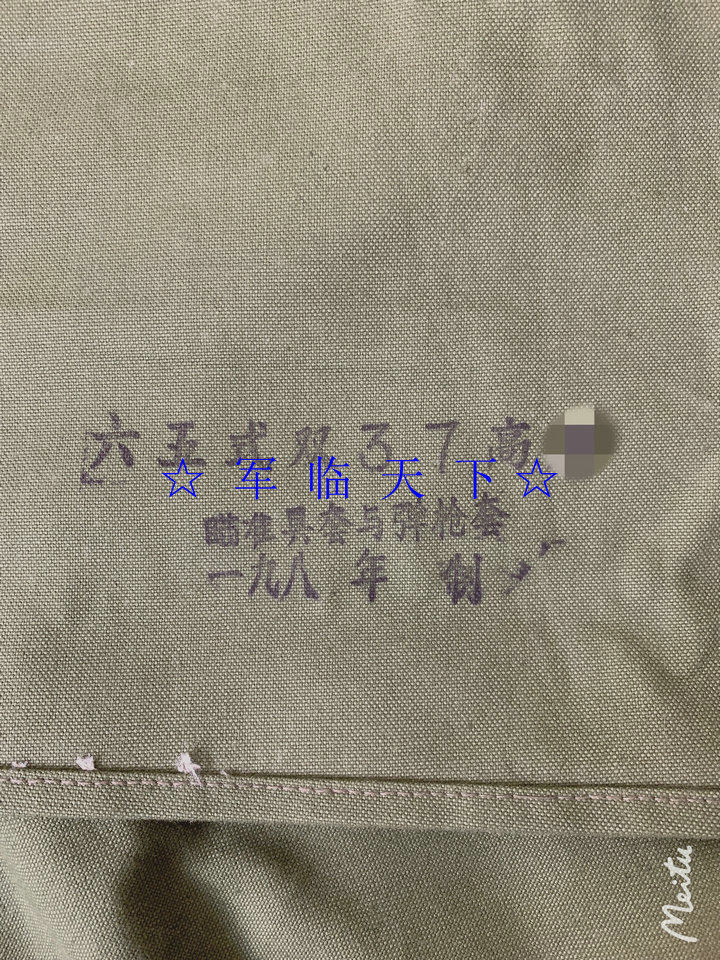 六五式双37高
☆ 军 临 天 下 ☆
瞄准具套与弹枪套
一九八 年 制
Meitu